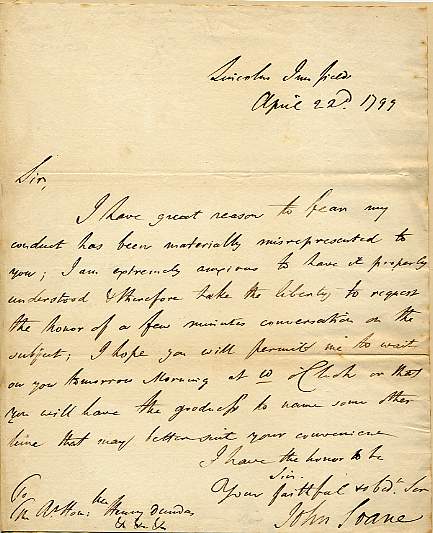 Lincolns Inn fields
April 22d. 1799
Sir,
I have great reason to fear my
conduct has been materially misrepresented to
you; I am extremely anxious to have it properly
understood & therefore take the liberty to request
the honor of a few minutes conversation on the
subject; I hope you will permit me to wait
on you tomorrow Morning at 10 oClock or that
you will have the goodness to name some other
time that may better suit your convenience
I have the honor to be
Sir.
Your faithful & obdt. Ser
John Soane
To
The Rt. Hon: ble Henry Dundas
&c &c &c